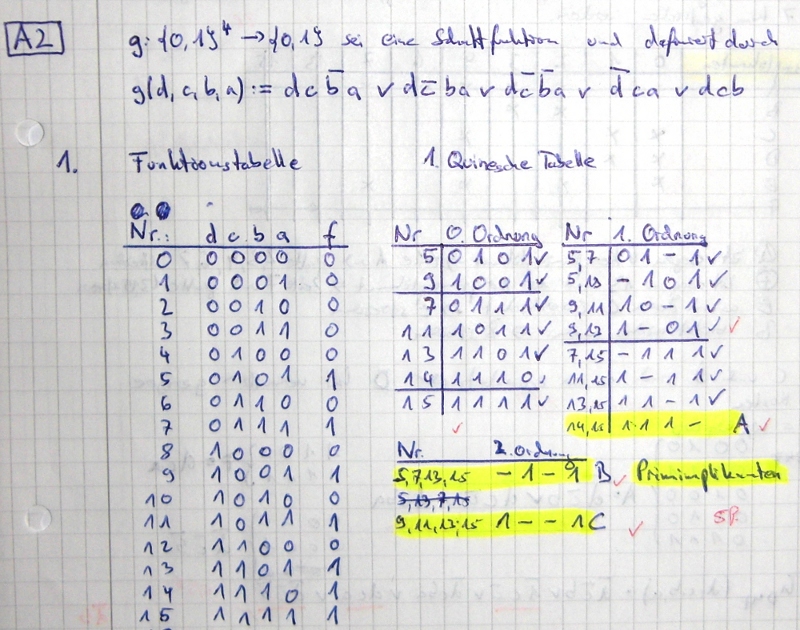 A2
g: {0,1}⁴ → {0,1} sei eine Schaltfunktion und definiert durch
g(d,c,b,a) := d c b̅ a v d c̅ b a v d c̅ b̅ a v d̅ c a v d c b
1. Funktionstabelle
1. Quinesche Tabelle
Nr.: d c b a f
0 0 0 0 0 0
1 0 0 0 1 0
2 0 0 1 0 0
3 0 0 1 1 0
4 0 1 0 0 0
5 0 1 0 1 1
6 0 1 1 0 0
7 0 1 1 1 1
8 1 0 0 0 0
9 1 0 0 1 1
10 1 0 1 0 0
11 1 0 1 1 1
12 1 1 0 0 0
13 1 1 0 1 1
14 1 1 1 0 1
15 1 1 1 1 1
Nr 0. Ordnung
5 0 1 0 1 ✓
9 1 0 0 1 ✓
7 0 1 1 1 ✓
11 1 0 1 1 ✓
13 1 1 0 1 ✓
14 1 1 1 0 ✓
15 1 1 1 1 ✓
Nr 1. Ordnung
5,7 0 1 - 1 ✓
5,13 - 1 0 1 ✓
9,11 1 0 - 1 ✓
9,13 1 - 0 1 ✓
7,15 - 1 1 1 ✓
11,15 1 - 1 1 ✓
13,15 1 1 - 1 ✓
14,15 1 1 1 - A
Nr. 2. Ordnung
5,7,13,15 - 1 - 1 B Primimplikanten
5,13,7,15
9,11,13,15 1 - - 1 C